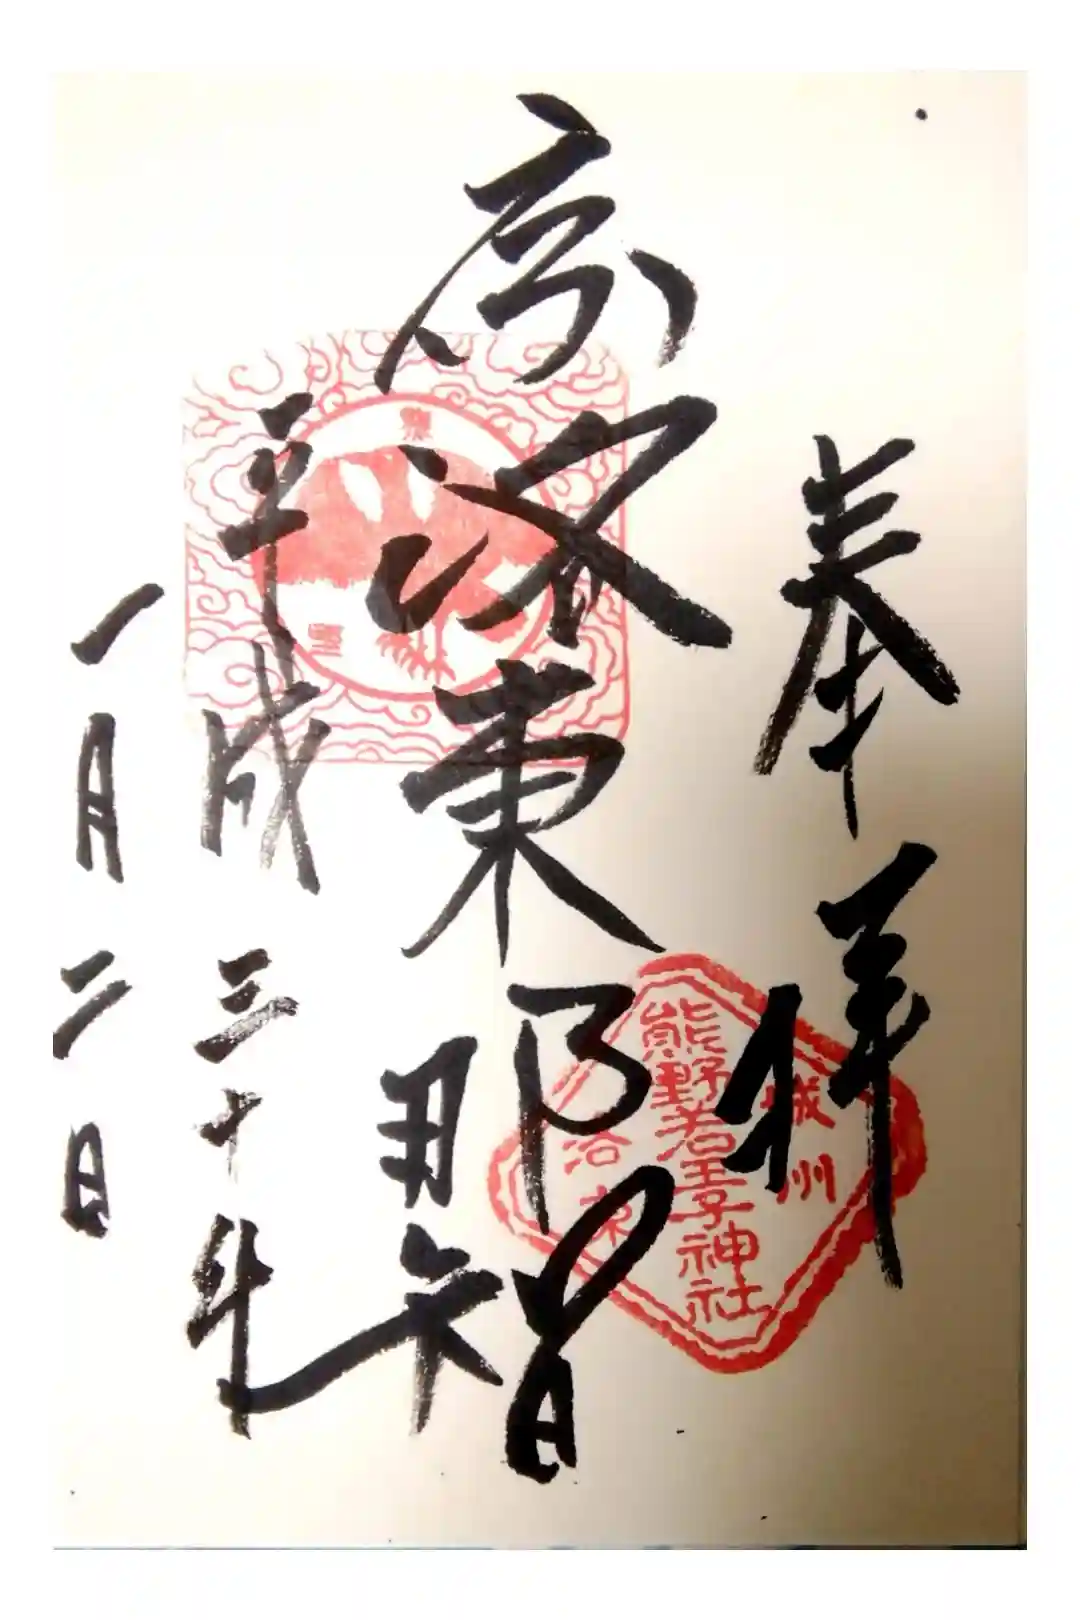 奉拝
城州
熊野若王子神社
洛東
京洛東那智
平成三十年
一月二日